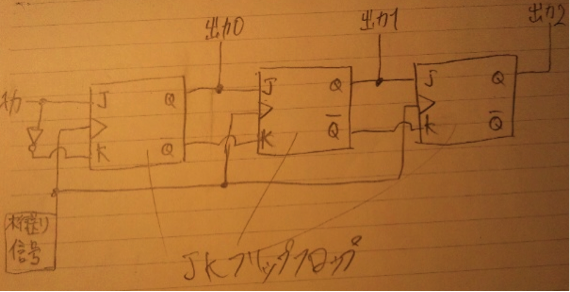 出力0
出力1
出力2
入力
J Q
K Q̅
J Q
K Q̅
J Q
K Q̅
信号
JKフリップフロップ